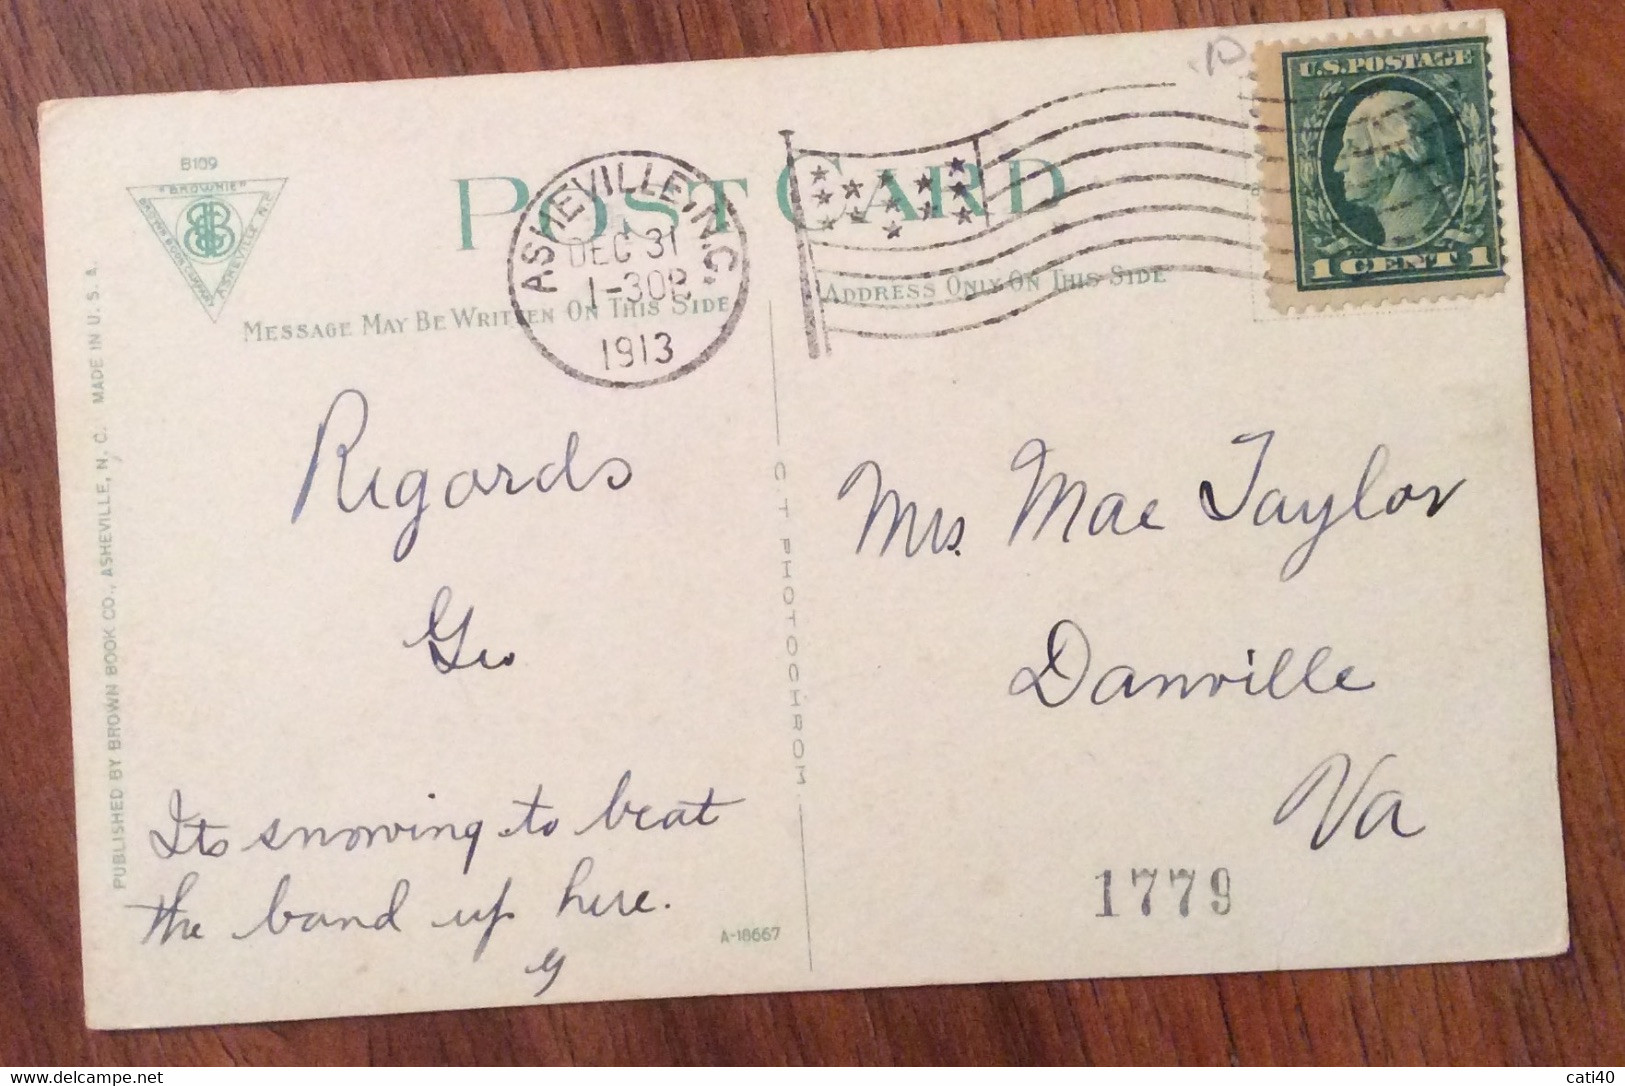 B109
"BROWNIE"
BROWN BOOK COMPANY
ASHEVILLE N.C.
POST CARD
ASHEVILLE, N.C.
DEC 31
1-30P
1913
U.S.POSTAGE
1 CENT 1
MESSAGE MAY BE WRITTEN ON THIS SIDE
ADDRESS ONLY ON THIS SIDE
PUBLISHED BY BROWN BOOK CO., ASHEVILLE, N. C. MADE IN U. S. A.
C. T. PHOTOCHROM
Regards
Geo
Its snowing to beat
the band up here.
G
Mrs. Mae Taylor
Danville
Va
1779
A-18667
cati40